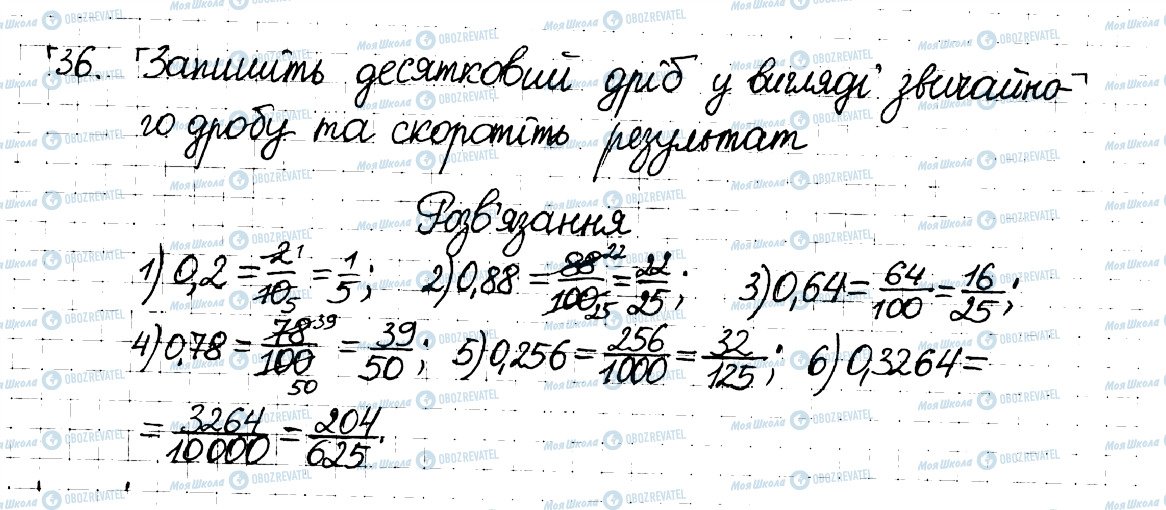 36. Запишіть десятковий дріб у вигляді звичайно-
го дробу та скоротіть результат
Розв'язання
1) 0,2 = 2 1/10 5 = 1/5; 2) 0,88 = 88 22/100 25 = 22/25; 3) 0,64 = 64/100 = 16/25;
4) 0,78 = 78 39/100 50 = 39/50; 5) 0,256 = 256/1000 = 32/125; 6) 0,3264 =
= 3264/10000 = 204/625.